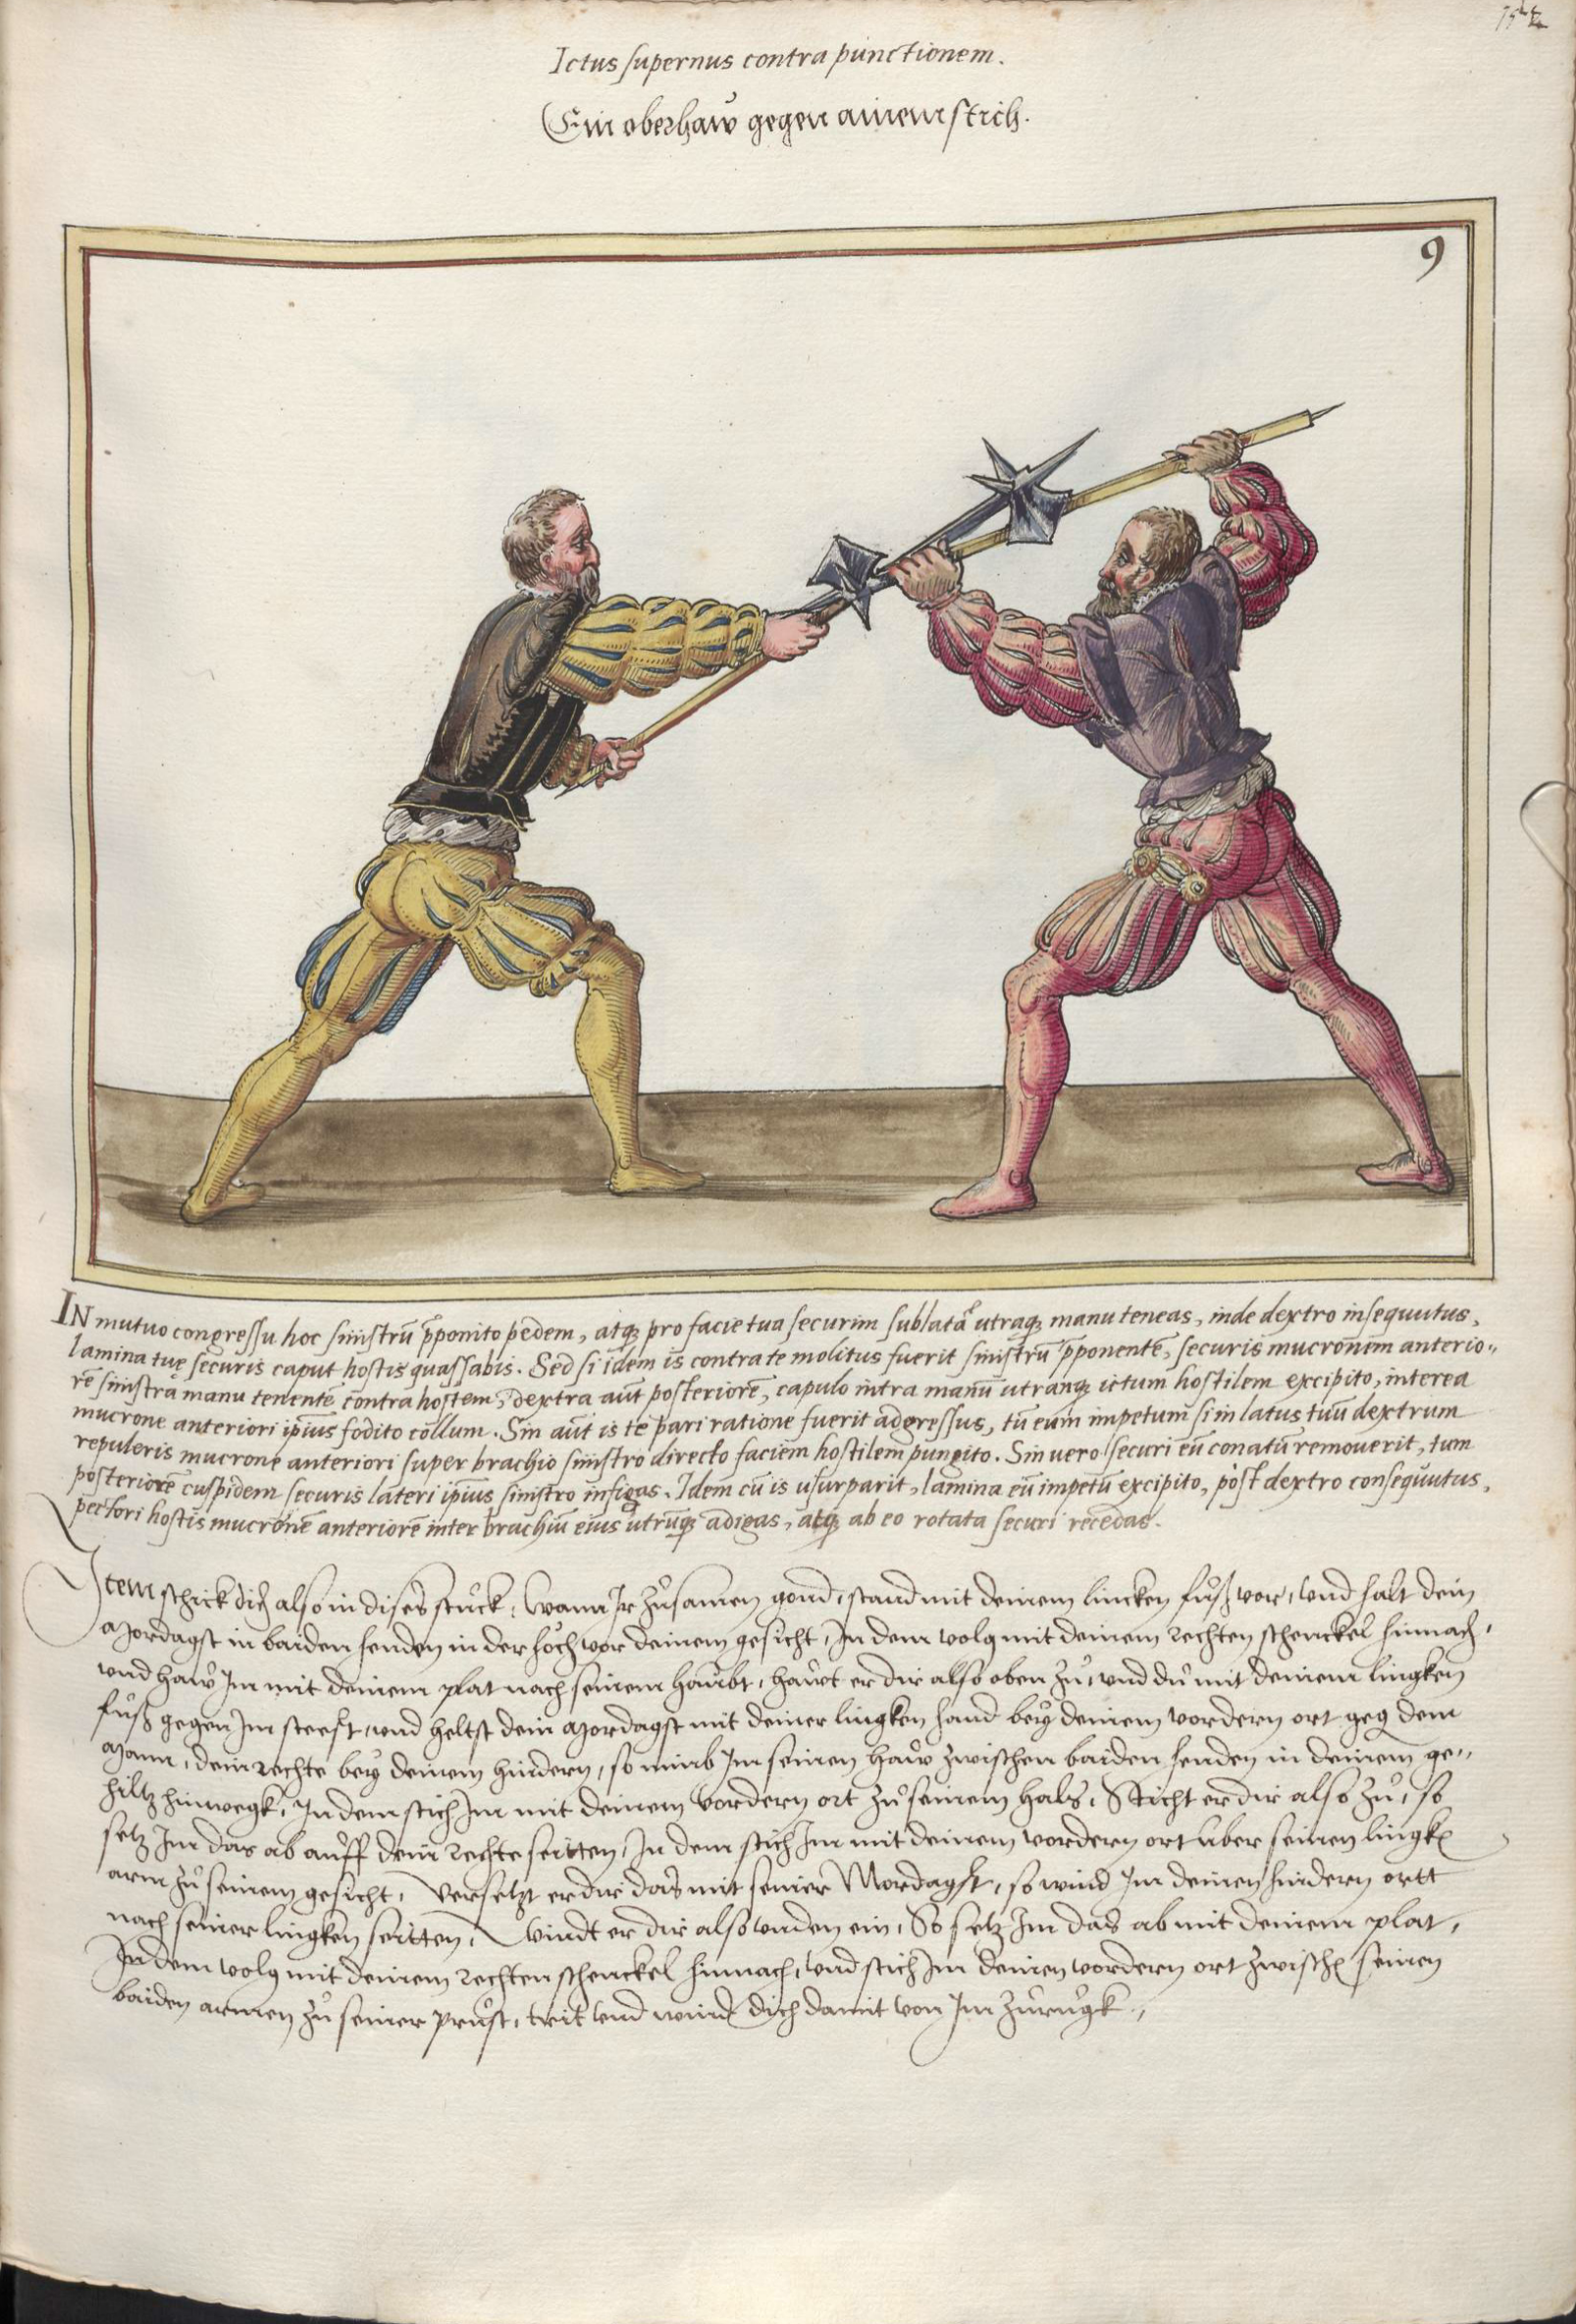 Ictus supernus contra punctionem.
Ein oberhaw gegen ainem stich.
9
IN mutuo congressu hoc sinistrū p̄ponito pedem, atq̨ pro facie tua securim sublatā utraq̨ manu teneas, inde dextro insequutus,
lamina tuę securis caput hostis quassabis. Sed si idem is contra te molitus fuerit sinistrū p̄ponentē, securis mucronem anterio„
rē sinistrā manu tenentē contra hostem, dextra aūt posteriorē, capulo intra manū utranq̨ ictum hostilem excipito, interea
mucrone anteriori ip̄ius fodito collum. Sin aūt is te pari ratione fuerit adgressus, tū eum impetum si in latus tuū dextrum
repuleris mucrone anteriori super brachio sinistro directo faciem hostilem pungito. Sin vero securi eū conatū remouerit, tum
posteriorē cuspidem securis lateri ip̄ius sinistro infigas. Idem cū is usurparit, lamina eū impetū excipito, post dextro consequutus,
pectori hostis mucronē anteriorē inter brachiū eius utrūq̨ adigas, atq̨ ab eo rotata securi recedas.
Item schick dich also in dises stuck, Wann Ir zůsamen gond, stand mit deinem lincken fůß vor, vnd halt dein
Mordagst in baiden henden in der höch vor deinem gesicht, In dem volg mit deinem rechten schenckel hinnach,
vnd haw Im mit deinem plat nach seinem haubt, hawt er dir also oben zů, vnd du mit deinem lingken
fůß gegen Im steehst, vnd heltst dein Mordagst mit deiner lingken hand bey deinem vordern ort geg dem
Mann, dein rechte bey deinem hindern, so nimb Im seinen haw zwischen baiden henden in deinem ge„
hiltz hinwegk, In dem stich Im mit deinem vordern ort zů seinem hals, Sticht er dir also zů, so
setz Im das ab auff dein rechte seitten, In dem stich Im mit deinem vordern ort über seinen lingkē
arm zů seinem gesicht, Versetzt er dir das mit seiner Mordagst, so wind Im deinen hindern ortt
nach seiner lingken seitten, Windt er dir also vnden ein, So setz Im das ab mit deinem plat,
In dem volg mit deinem rechten schenckel hinnach, vnd stich Im deinen vordern ort zwischē seinen
baiden armen zů seiner prust, trit vnd wind dich damit von Im zůrugk,